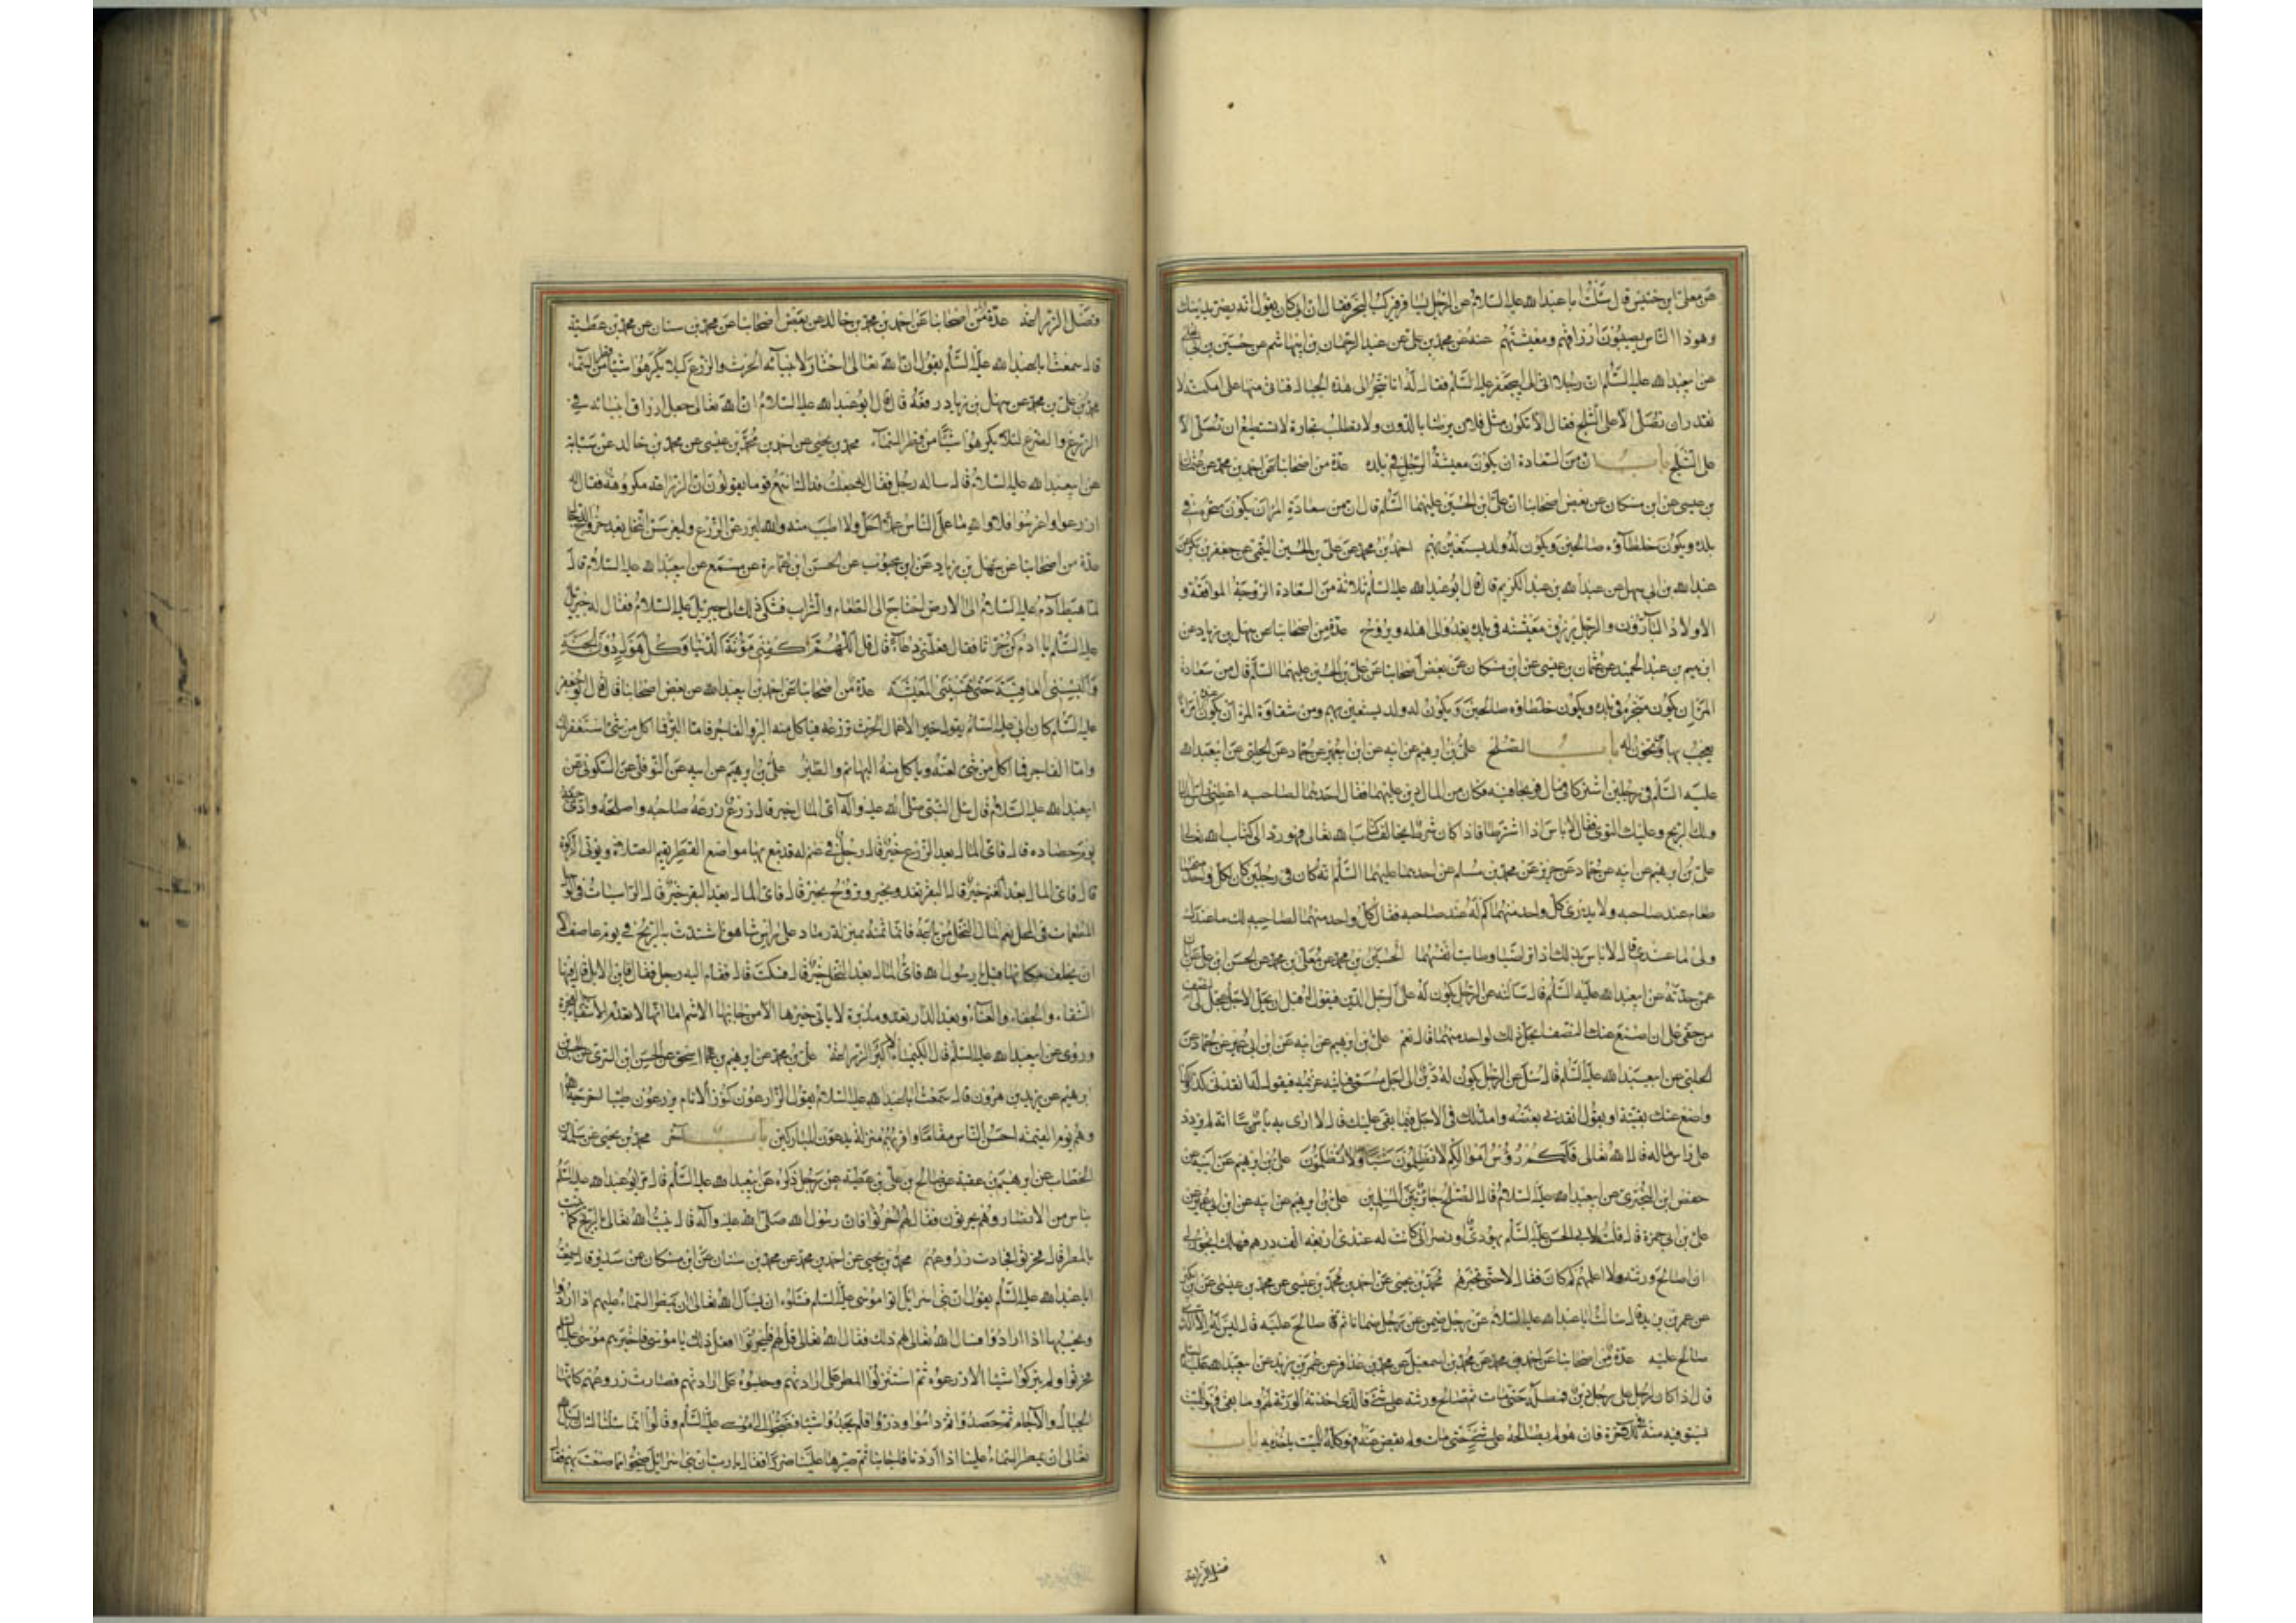 عن معلى ابن خنيس قال سئلت ابا عبد الله عليه السلام عن الرجل يسافر فيركب البحر فقال ان ابى كان يقول انه يضر بدينك
وهو ذا الناس يصيبون ارزاقهم ومعيشتهم عنه عن محمد بن على عن عبد الرحمان بن ابيهاشم عن حسين بن ابى
عن ابيعبد الله عليه السلم ان رجلا اتى ابا جعفر عليه السلم فقال له انا نتجر الى هذه الجبال فناتى منها على امكنة لا
نقدر ان نصلى الا على الثلج فقال الا تكون مثل فلان يرضا بالدون ولا يطلب تجارة لا يستطيع ان يصلى الا
على الثلج باب ان من السعادة ان يكون معيشة الرجل فى بلده عدة من اصحابنا عن احمد بن محمد عن عثمان
بن عيسى عن ابن مسكان عن بعض اصحابنا ان على بن الحسين عليهما السلم قال ان من سعادة المرء ان يكون متجره فى
بلده ويكون خلطآؤه صالحين ويكون له ولد يستعين بهم احمد بن محمد عن على بن الحسين التيمى عن جعفر بن بكر عن
عبد الله بن ابى سهل عن عبد الله بن عبد الكريم قال قال ابو عبد الله عليه السلم ثلاثة من السعادة الزوجة الموافقة و
الاولاد البارون والرجل يرزق معيشته فى بلده يغدو الى اهله ويروح عدة من اصحابنا عن سهل بن زياد عن
عبد الحميد عن عثمان بن عيسى عن ابن مسكان عن بعض اصحابنا عن على بن الحسين عليهما السلم قال من سعادة
المرء ان يكون متجره فى بلده ويكون خلطاؤه صالحين ويكون له ولد يستعين بهم ومن شقاوة المرء ان يكون عنده امراة
يعجب بها وتخونه باب الصلح على بن ابرهيم عن ابيه عن ابن ابيعمير عن حماد عن الحلبى عن ابيعبد الله
عليه السلم فى رجلين اشتركا فى مال فربحا فيه فكان من المال دين عليهما فقال احدهما لصاحبه اعطنى راس المال
ولك الربح وعليك التوى فقال لا باس اذا اشترطا فاذا كان شرطا يخالف كتاب الله تعالى فهو رد الى كتاب الله تعالى
على بن ابرهيم عن ابيه عن حماد عن حريز عن محمد بن مسلم عن احدهما عليهما السلم انه قال فى رجلين كان لكل واحد منهما
طعام عند صاحبه ولا يدرى كل واحد منهما كم له عند صاحبه فقال كل واحد منهما لصاحبه لك ما عندك
ولى ما عندى قال لا باس بذلك اذا تراضيا وطابت انفسهما الحسين بن محمد عن معلى بن محمد عن الحسن ابن على عن ابان
عمن حدثه عن ابيعبد الله عليه السلم قال سالته عن الرجل يكون له على الرجل الدين فيقول له قبل ان يحل الاجل عجل لى النصف
من حقى على ان اضع عنك النصف ايحل ذلك لواحد منهما قال نعم على بن ابرهيم عن ابيه عن ابن ابى عمير عن حماد عن
الحلبى عن ابيعبد الله عليه السلم قال سئل عن الرجل يكون له دين الى اجل مسمى فياتيه غريمه فيقول له انقدنى كذا وكذا
واضع عنك بقيته او يقول انقدنى بعضه وامد لك فى الاجل فيما بقى عليك قال لا ارى به باسا انه لم يزدد
على راس ماله قال الله تعالى فلكم رؤس اموالكم لا تظلمون ولا تظلمون على بن ابرهيم عن ابيه عن
حفص ابن البخترى عن ابيعبد الله عليه السلام قال الصلح جائز بين المسلمين على بن ابرهيم عن ابيه عن ابن ابيعمير عن
على بن ابى حمزة قال قلت لابى الحسن عليه السلم يهودى او نصرانى كانت له عندى اربعة الف درهم فهلك ايجوز لى
ان اصالح ورثته ولا اعلمهم كم كان فقال لا حتى تخبرهم محمد بن يحيى عن احمد بن محمد بن عيسى عن محمد بن عيسى عن ابن بكير
عن عمر بن يزيد قال سالت ابا عبد الله عليه السلام عن رجل ضمن عن رجل ضمانا ثم صالح عليه قال ليس له الا الذى
صالح عليه عدة من اصحابنا عن احمد بن محمد عن محمد بن اسمعيل عن محمد بن عذافر عن عمر بن يزيد عن ابيعبد الله عليه السلم
قال اذا كان لرجل على رجل دين فمطله حتى مات ثم صالح ورثته على شئ فالذى اخذته الورثة لهم وما بقى فهو للميت
يستوفيه منه فى الاخرة فان هو لم يصالحه على شئ حتى مات ولم يقض عنه فهو كله للميت ياخذه به باب
فضل الزراعة
فضل الزراعة عدة من اصحابنا عن احمد بن محمد بن خالد عن بعض اصحابنا عن محمد بن سنان عن محمد بن عطية
قال سمعت ابا عبد الله عليه السلم يقول ان الله تعالى اختار لانبيآئه الحرث والزرع كيلا يكرهوا شيئا من قطر السمآء
محمد بن على بن محمد عن سهل بن زياد رفعه قال قال ابو عبد الله عليه السلام ان الله تعالى جعل ارزاق انبيائه فى
الزرع والضرع لئلا يكرهوا شيئا من قطر السمآء محمد بن يحيى عن احمد بن محمد بن عيسى عن محمد بن خالد عن سيابة
عن ابيعبد الله عليه السلام قال ساله رجل فقال له جعلت فداك اسمع قوما يقولون ان الزراعة مكروهة فقال له
ازرعوا واغرسوا فلا والله ما عمل الناس عملا احل ولا اطيب منه والله ليزرعن الزرع وليغرسن النخل بعد خروج الدجال
عدة من اصحابنا عن سهل بن زياد عن ابن محبوب عن الحسن ابن عمارة عن مسمع عن ابيعبد الله عليه السلام قال
لما هبط آدم عليه السلام الى الارض احتاج الى الطعام والشراب فشكى ذلك الى جبرئيل عليه السلام فقال له جبرئيل
عليه السلم يا ادم كن حراثا فقال فعلمنى دعآء قال قل اللهم اكفنى مؤنة الدنيا وكل هول دون الجنة
والبسنى العافية حتى تهنئنى المعيشة عدة من اصحابنا عن احمد بن ابيعبد الله عن بعض اصحابنا قال قال ابو جعفر
عليه السلم كان ابى عليه السلم يقول خير الاعمال الحرث تزرعه فياكل منه البر والفاجر فاما البر فما اكل من شئ استغفر لك
واما الفاجر فما اكل من شئ لعنه وياكل منه البهائم والطير على بن ابرهيم عن ابيه عن النوفلى عن السكونى عن
ابيعبد الله عليه السلام قال سئل النبى صلى الله عليه وآله اى المال خير قال زرع زرعه صاحبه واصلحه وادى حقه
يوم حصاده قال فاى المال بعد الزرع خير قال رجل فى غنم له قد تبع بها مواضع القطر يقيم الصلاة ويؤتى الزكوة
قال فاى المال بعد الغنم خير قال البقر تغدو بخير وتروح بخير قال فاى المال بعد البقر خير قال الراسيات فى الوحل
المطعمات فى المحل نعم المال النخل من باعه فانما ثمنه بمنزلة رماد على راس شاهق اشتدت به الريح فى يوم عاصف الا
ان يخلف مكانها قيل يا رسول الله فاى المال بعد النخل خير قال فسكت قال فقام اليه رجل فقال فاين الابل قال فيها
الشقاء والجفاء والعناء وبعد الدار تغدو مدبرة لا ياتى خيرها الا من جانبها الاشئم اما انها لا تعدم الاشقياء الفجرة
وروى عن ابيعبد الله عليه السلم قال الكيمياء الاكبر الزراعة على بن محمد عن ابرهيم بن اسحق عن الحسن ابن السرى عن الحسن بن
ابرهيم عن يزيد بن هرون قال سمعت ابا عبد الله عليه السلام يقول الزارعون كنوز الانام يزرعون طيبا اخرجه الله
وهم يوم القيمة احسن الناس مقاما واقربهم منزلة يدعون المباركين باب آخر محمد بن يحيى عن سلمة بن
الخطاب عن ابرهيم بن عقبة عن صالح بن على بن عطية عن رجل ذكره عن ابيعبد الله عليه السلم قال مر ابو عبد الله عليه السلم
بناس من الانصار وهم يحرثون فقال لهم احرثوا فان رسول الله صلى الله عليه وآله قال ينبت الله تعالى بالريح كما ينبت
بالمطر قال فحرثوا فجادت زروعهم محمد بن يحيى عن احمد بن محمد عن محمد بن سنان عن ابن مسكان عن سدير قال سمعت
ابا عبد الله عليه السلم يقول ان بنى اسرائيل اتوا موسى عليه السلم فسئلوه ان يسال الله تعالى ان يمطر السماء عليهم اذا ارادوا
ويحبسها اذا ارادوا فسال الله تعالى لهم ذلك فقال الله تعالى قل لهم فليحرثوا ذلك يا موسى فاخبرهم موسى عليه السلم
فحرثوا ولم يتركوا شيئا الا زرعوه ثم استنزلوا المطر على ارادتهم وحبسوه على ارادتهم فصارت زروعهم كانها
الجبال والآجام ثم حصدوا وداسوا وذروا فلم يجدوا شيئا فضجوا الى موسى عليه السلم وقالوا انما سئلناك ان تسال الله
تعالى ان يمطر السماء علينا اذا اردنا فاجابنا ثم صيرها علينا ضررا فقال يا رب ان بنى اسرائيل ضجوا مما صنعت بهم فقال